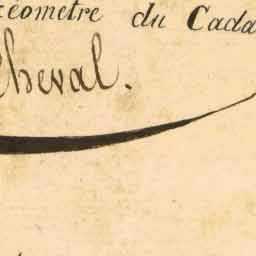 Géometre du Cada
Cheval.